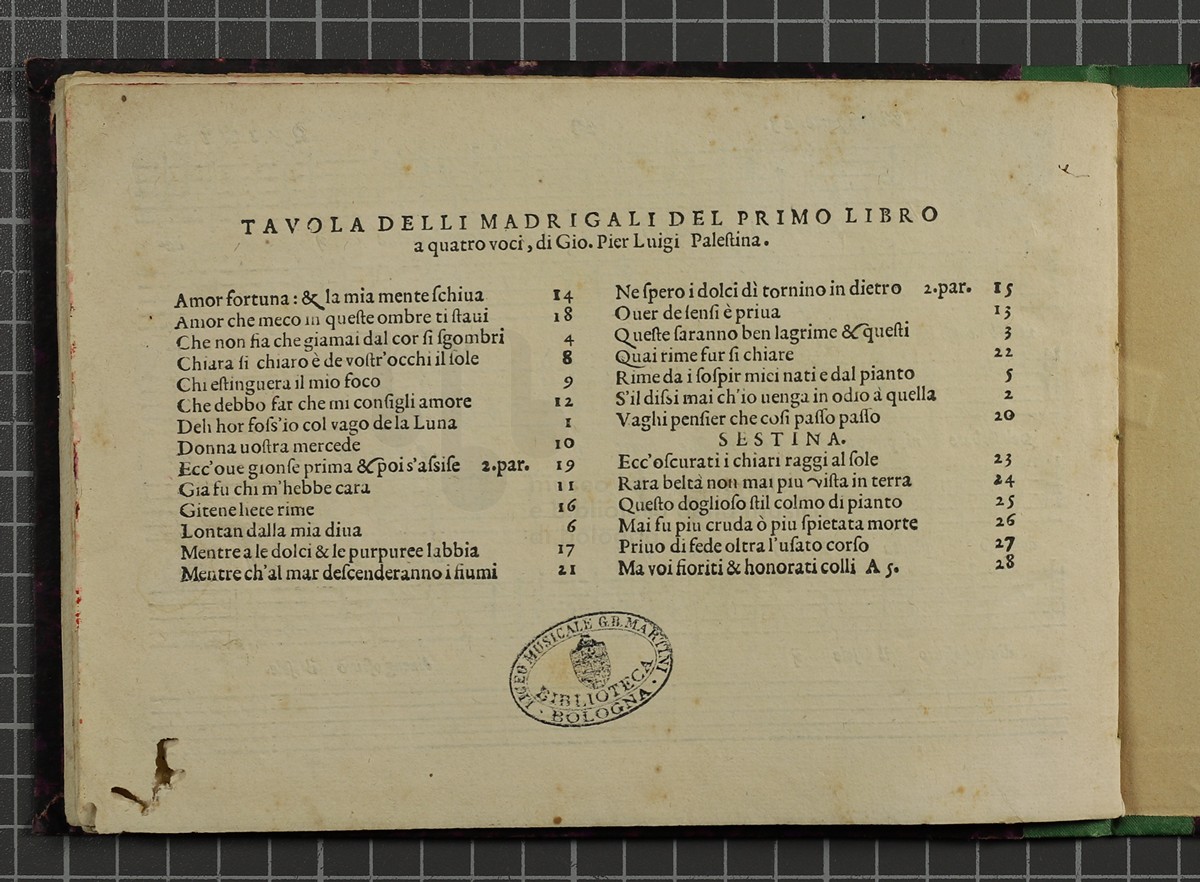 TAVOLA DELLI MADRIGALI DEL PRIMO LIBRO
a quatro voci, di Gio. Pier Luigi Paleſtina.
Amor fortuna: & la mia mente ſchiua 14
Amor che meco in queſte ombre ti ſtaui 18
Che non fia che giamai dal cor ſi ſgombri 4
Chiara ſi chiaro è de voſtr'occhi il ſole 8
Chi eſtinguera il mio foco 9
Che debbo far che mi conſigli amore 12
Deh hor foſs'io col vago de la Luna 1
Donna uoſtra mercede 10
Ecc'oue gionſe prima & poi s'aſsiſe 2.par. 19
Gia fu chi m'hebbe cara 11
Gitene liete rime 16
Lontan dalla mia diua 6
Mentre a le dolci & le purpuree labbia 17
Mentre ch'al mar deſcenderanno i fiumi 21
Ne ſpero i dolci dì tornino in dietro 2.par. 15
Ouer de ſenſi è priua 13
Queſte ſaranno ben lagrime & queſti 3
Quai rime fur ſi chiare 22
Rime da i ſoſpir mici nati e dal pianto 5
S'il diſsi mai ch'io uenga in odio à quella 2
Vaghi penſier che coſi paſſo paſſo 20
SESTINA.
Ecc'oſcurati i chiari raggi al ſole 23
Rara beltà non mai piu viſta in terra 24
Queſto doglioſo ſtil colmo di pianto 25
Mai fu piu cruda ò piu ſpietata morte 26
Priuo di fede oltra l'uſato corſo 27
Ma voi fioriti & honorati colli A 5. 28
LICEO MUSICALE G.B. MARTINI
BIBLIOTECA
· BOLOGNA ·